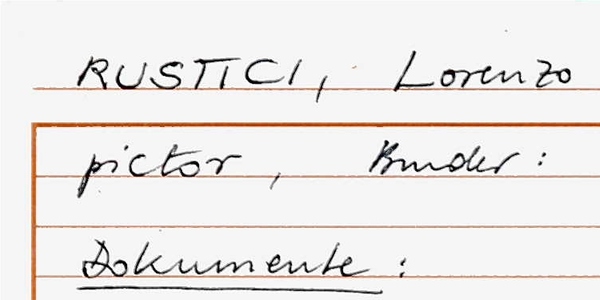 RUSTICI, Lorenzo
pictor, Bruder:
Dokumente: